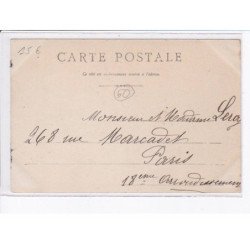 15 €
CARTE POSTALE
Ce côté est exclusivement réservé à l'adresse.
60
Monsieur et Madame Serg
268 rue Marcadet
Paris
18ème Arrondissement